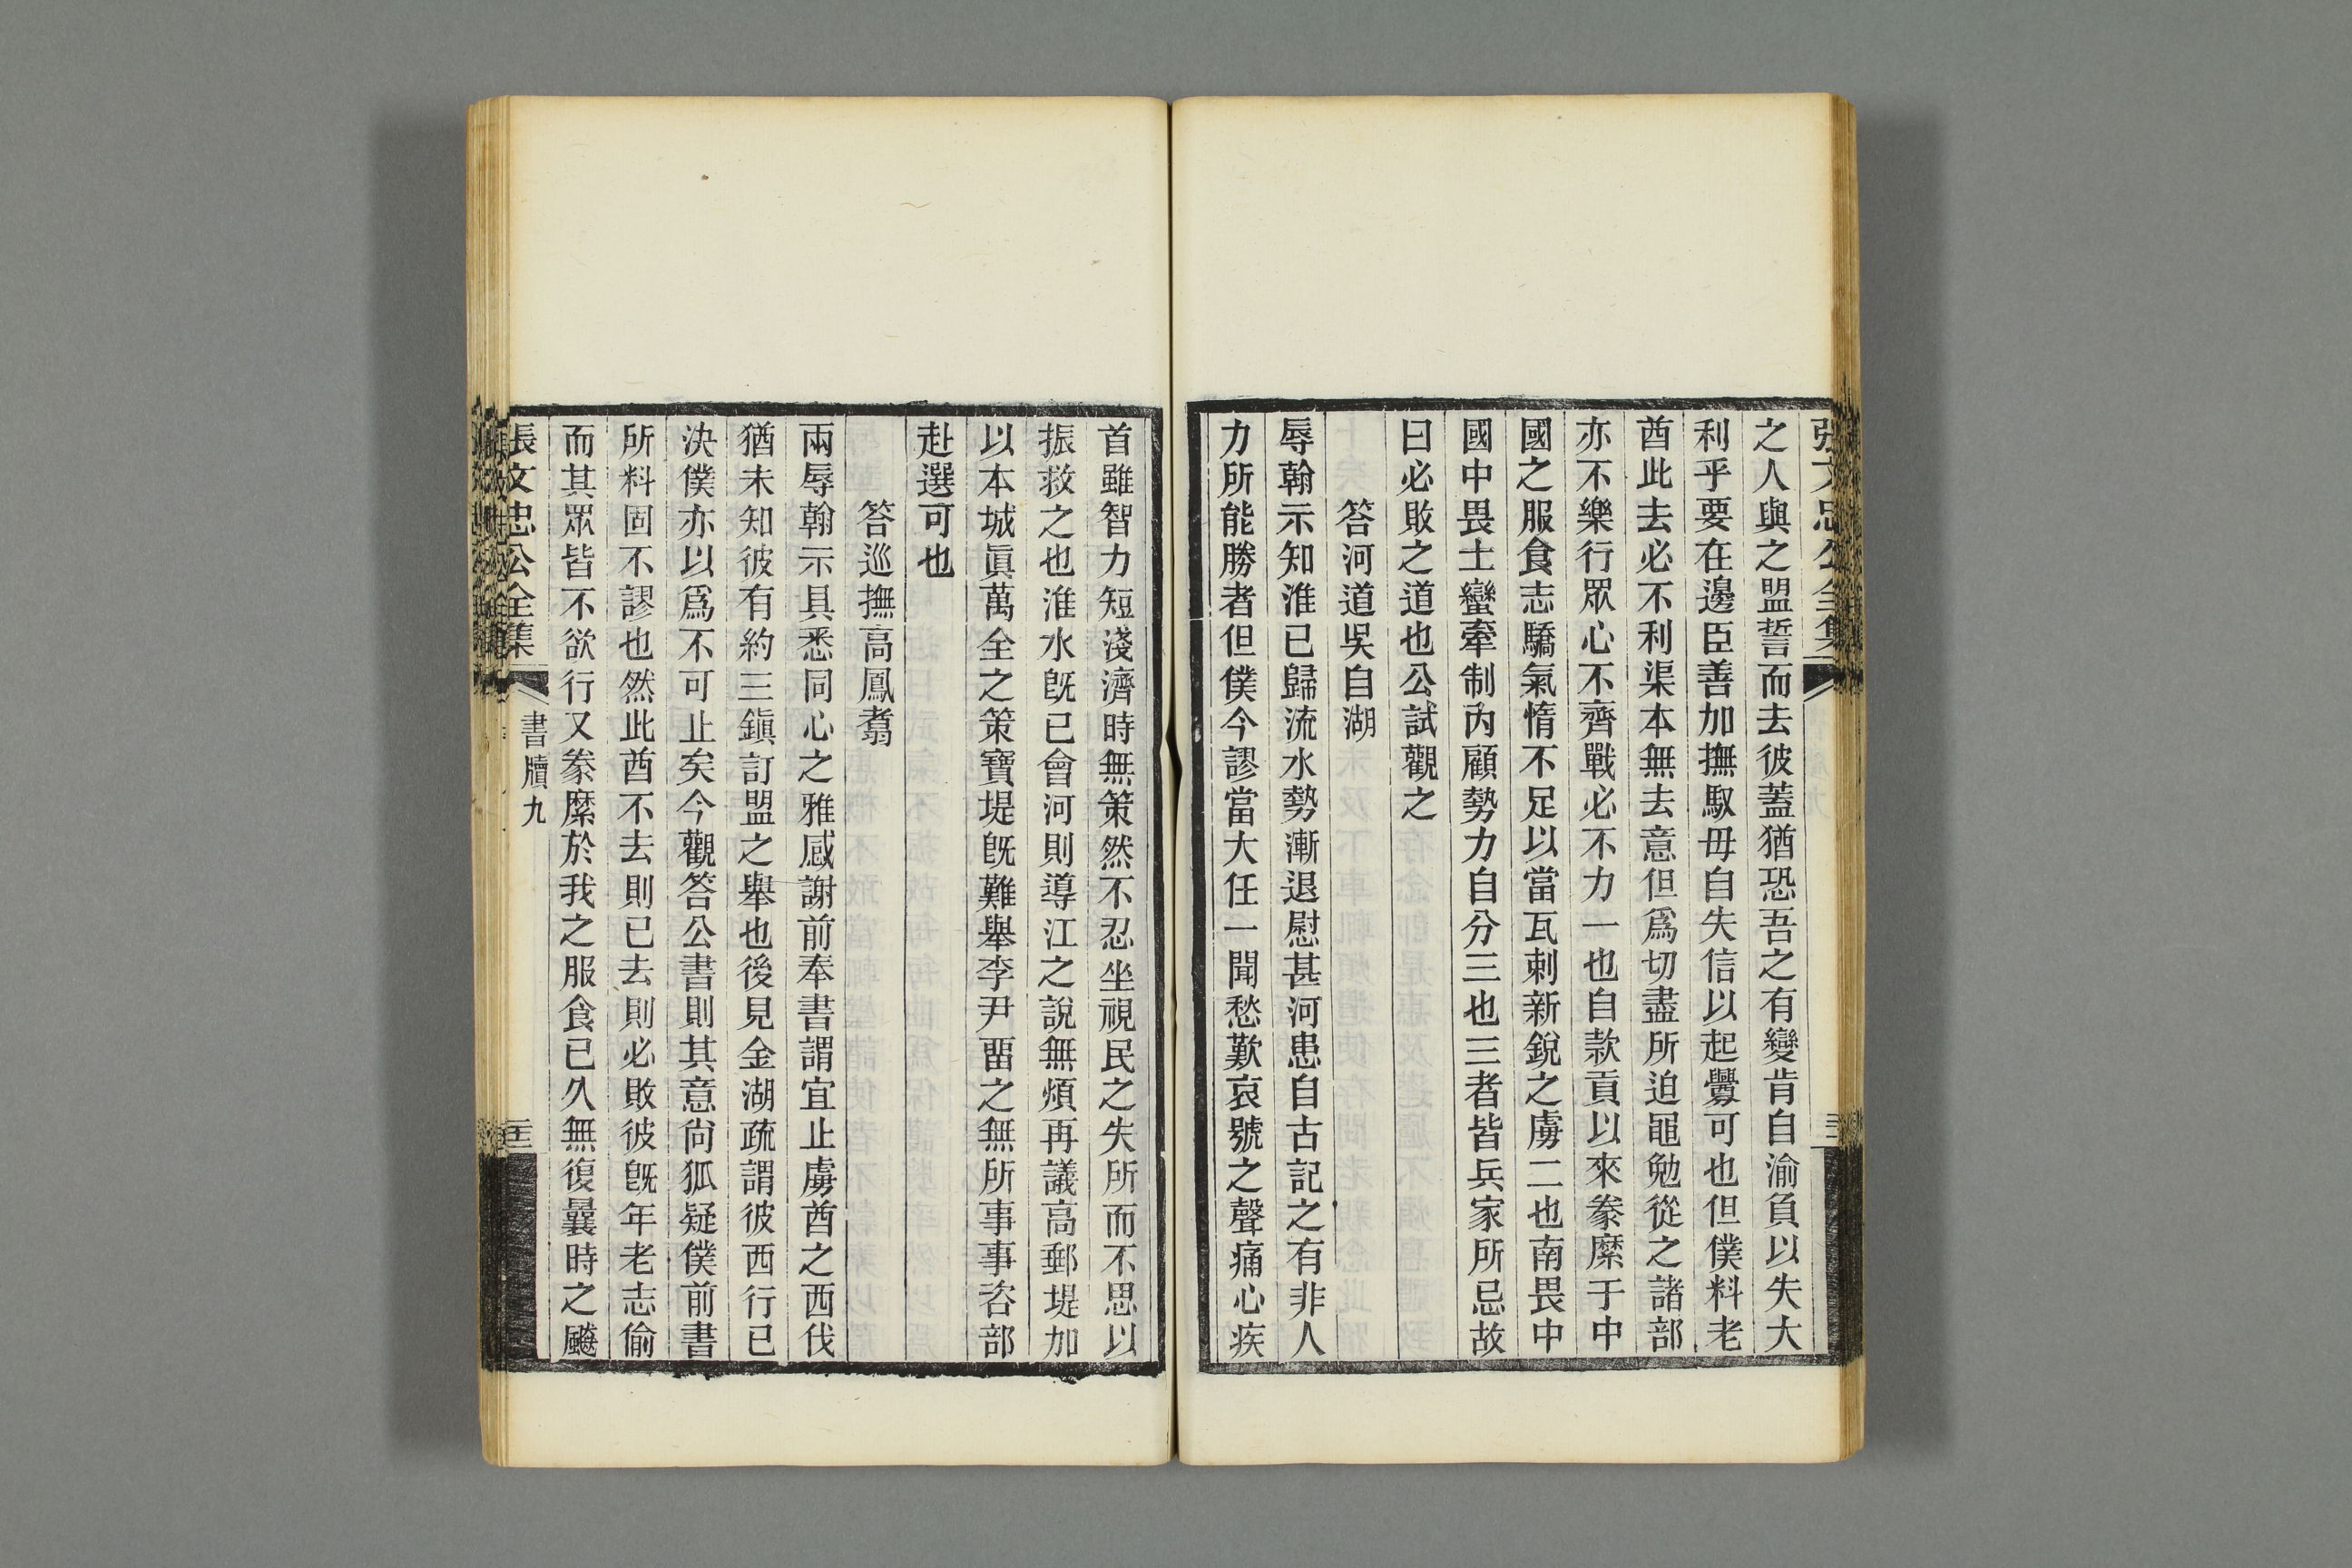 張文忠公全集
之人與之盟誓而去彼蓋猶恐吾之有變肯自渝負以失大
利乎要在邊臣善加撫馭毋自失信以起釁可也但僕料老
酋此去必不利渠本無去意但爲切盡所迫黽勉從之諸部
亦不樂行眾心不齊戰必不力一也自款貢以來豢糜于中
國之服食志驕氣惰不足以當瓦剌新銳之虜二也南畏中
國中畏土蠻牽制內顧勢力自分三也三者皆兵家所忌故
曰必敗之道也公試觀之
答河道吳自湖
辱翰示知淮已歸流水勢漸退慰甚河患自古記之有非人
力所能勝者但僕今謬當大任一聞愁歎哀號之聲痛心疾
首雖智力短淺濟時無策然不忍坐視民之失所而不思以
振救之也淮水旣已會河則導江之說無煩再議高郵堤加
以本城眞萬全之策寶堤旣難舉李尹畱之無所事事咨部
赴選可也
答巡撫高鳳翥
兩辱翰示具悉同心之雅感謝前奉書謂宜止虜酋之西伐
猶未知彼有約三鎭訂盟之舉也後見金湖疏謂彼西行已
決僕亦以爲不可止矣今觀答公書則其意尙狐疑僕前書
所料固不謬也然此酋不去則已去則必敗彼旣年老志偷
而其眾皆不欲行又豢糜於我之服食已久無復曩時之飈
張文忠公全集
書牘九